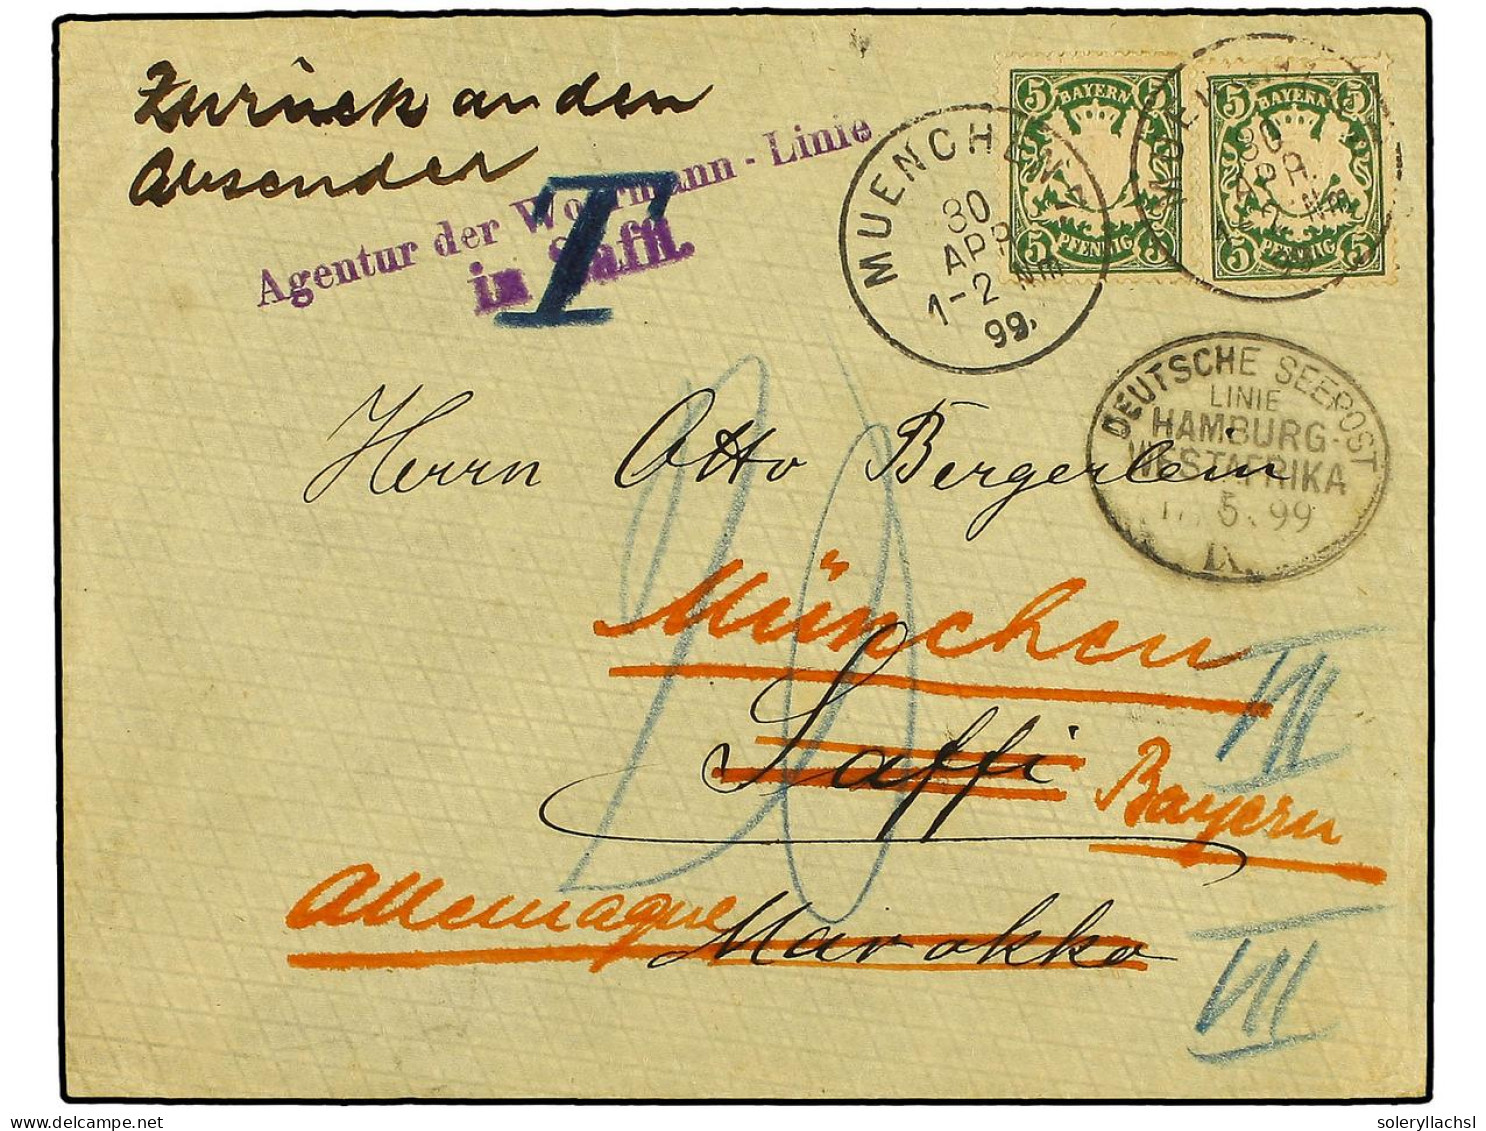 Zurück an den
Absender
Agentur der Woermann-Linie
in Saffi.
T
MUENCHEN
30
APR
1-2 Nm
99.
5 BAYERN 5
5 PFENNIG 5
5 BAYERN 5
5 PFENNIG 5
30
APR.
DEUTSCHE SEEPOST
LINIE
HAMBURG-
WESTAFRIKA
5.99
IX.
Herrn Otto Bergerlein
München
Saffi
Bayern
Allemagne
Marokko
VII
VII
20
© delcampe.net
soleryllachsl